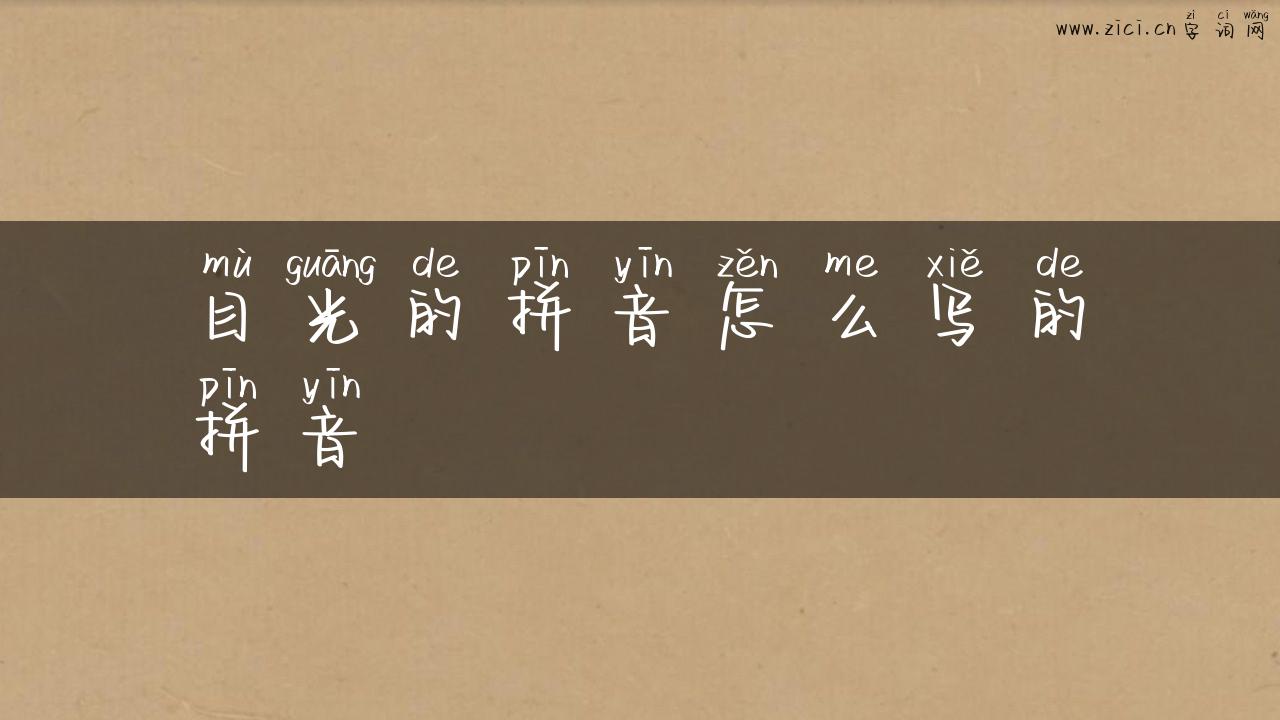 zì cí wǎng
www.zici.cn 字 词 网
mù guāng de pīn yīn zěn me xiě de
目 光 的 拼 音 怎 么 写 的
pīn yīn
拼 音